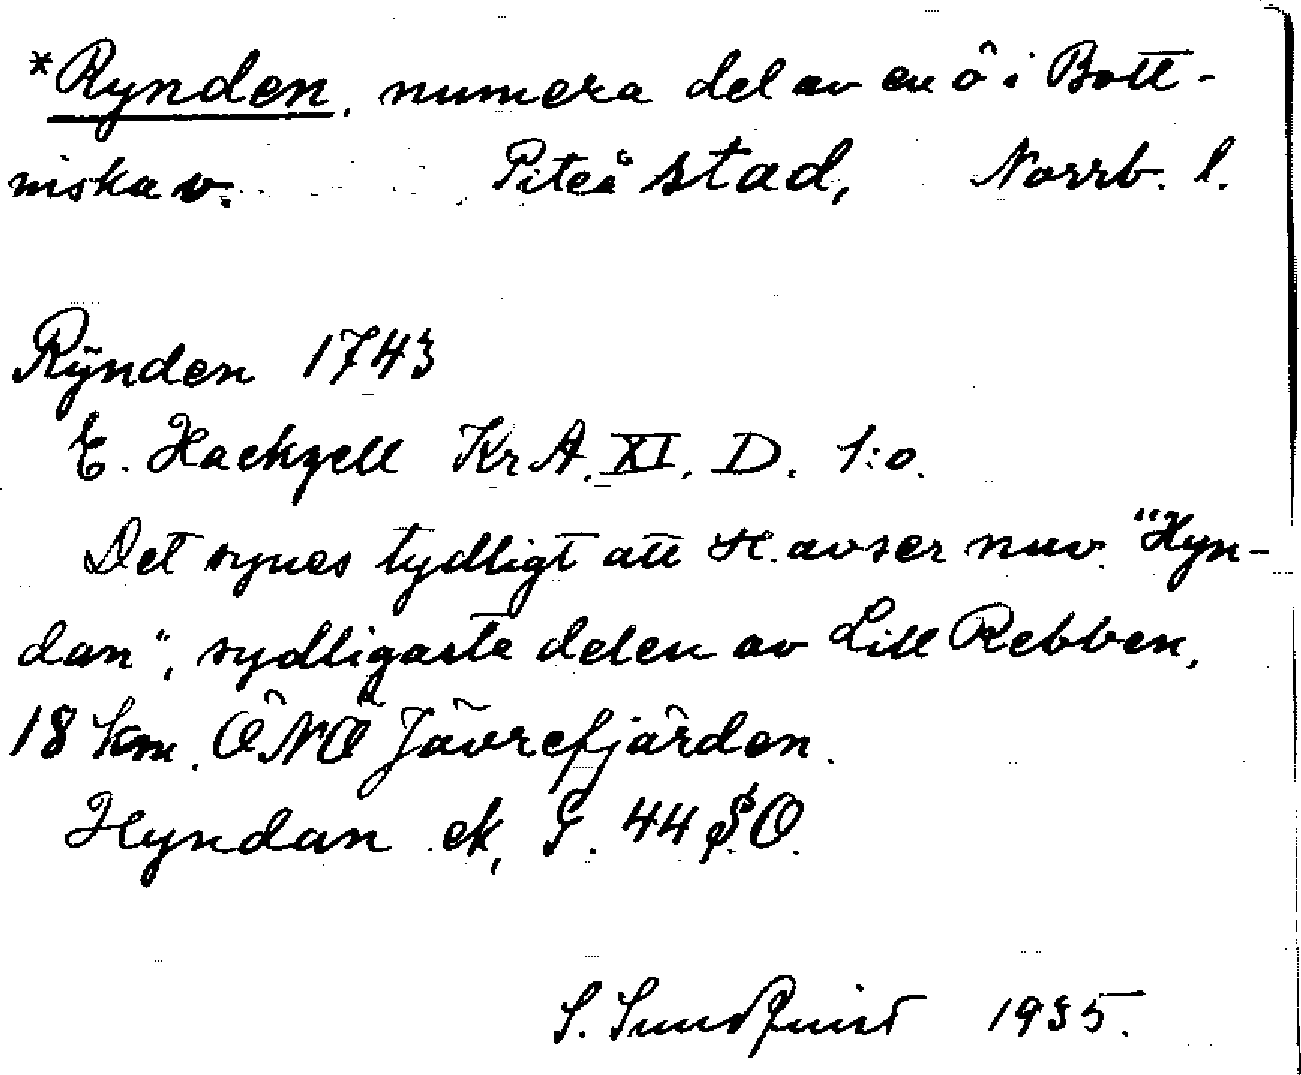 *Rynden, numera del av en ö i Bott-
niska v. Piteå stad, Norrb. l.
Rÿnden 1743
E. Hackzell KrA. XI. D. 1:o.
Det synes tydligt att H. avser nuv. "Hyn-
dan", sydligaste delen av Lill Rebben,
18 km. ÖNÖ Jävrefjärden.
Hyndan ek, S. 44 SO.
S. Sundquist 1935.